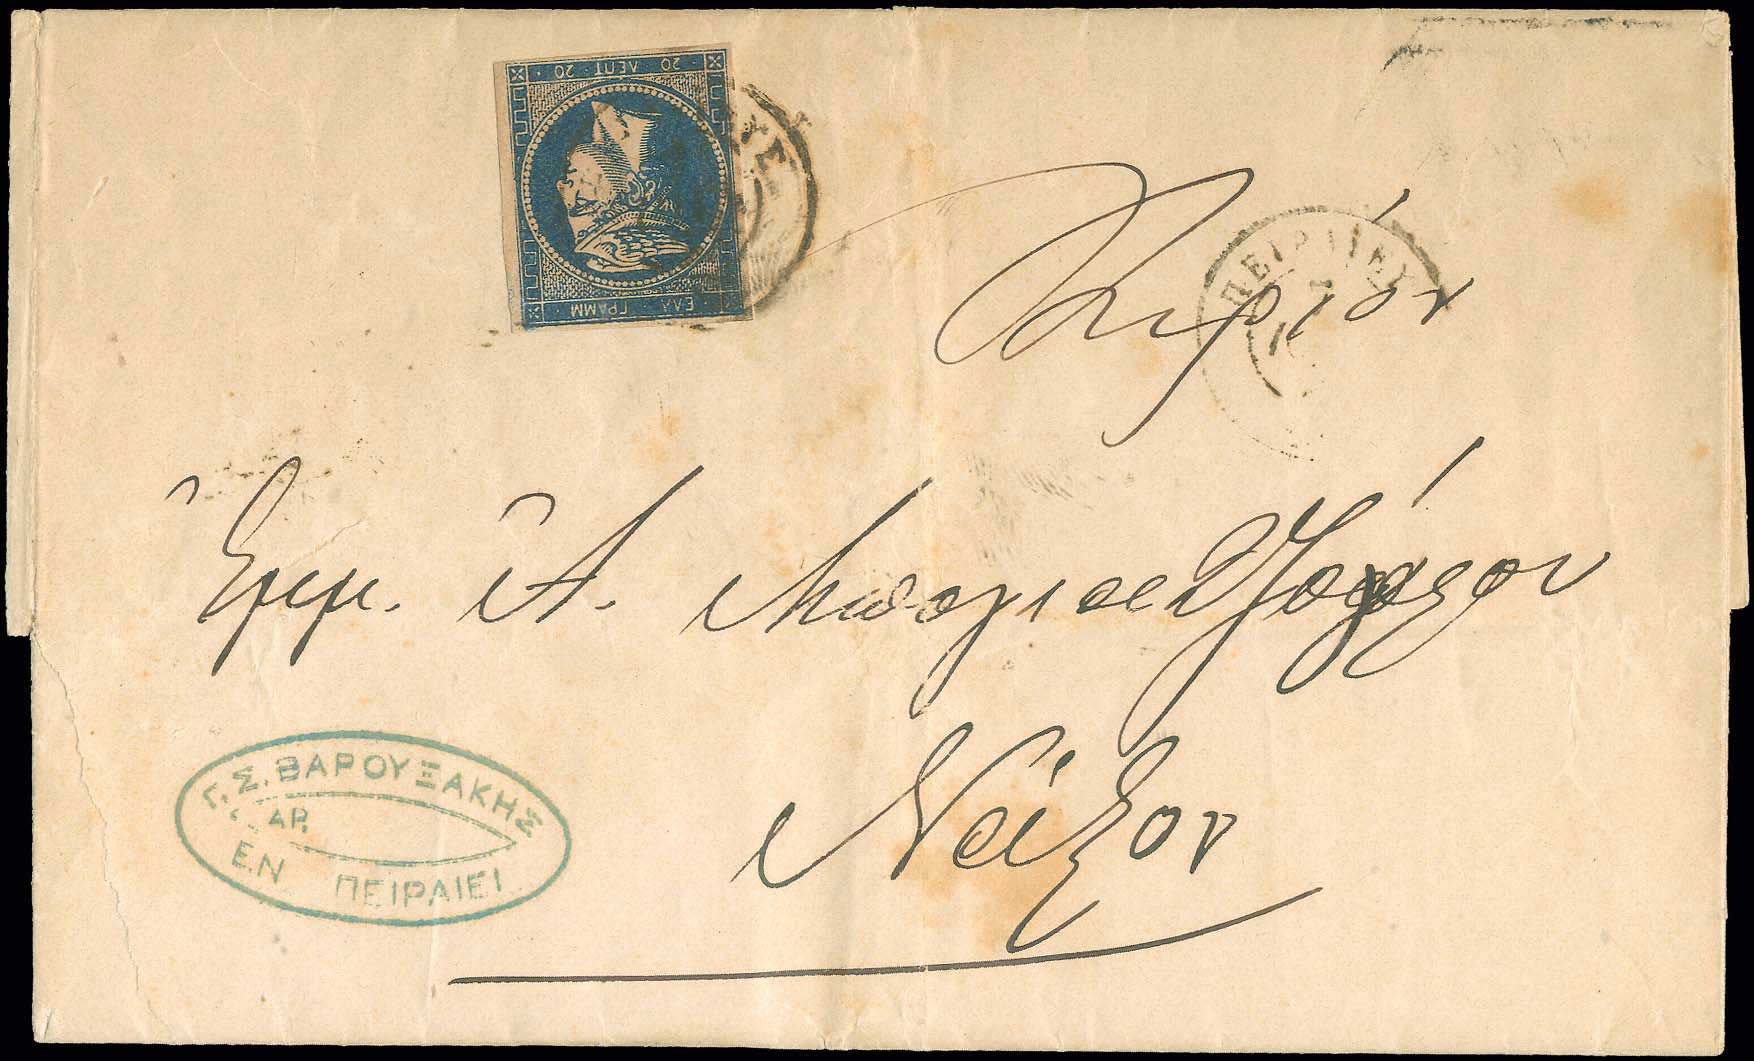 20 ΛΕΠΤ. 20
ΕΛΛ. ΓΡΑΜΜ
ΠΕΙΡΑΙΕΥΣ
Κύριον
Ἐμμ. Ἀ.
Νάξον
Γ. Σ. ΒΑΡΟΥΞΑΚΗΣ
ΑΡ.
ΕΝ ΠΕΙΡΑΙΕΙ